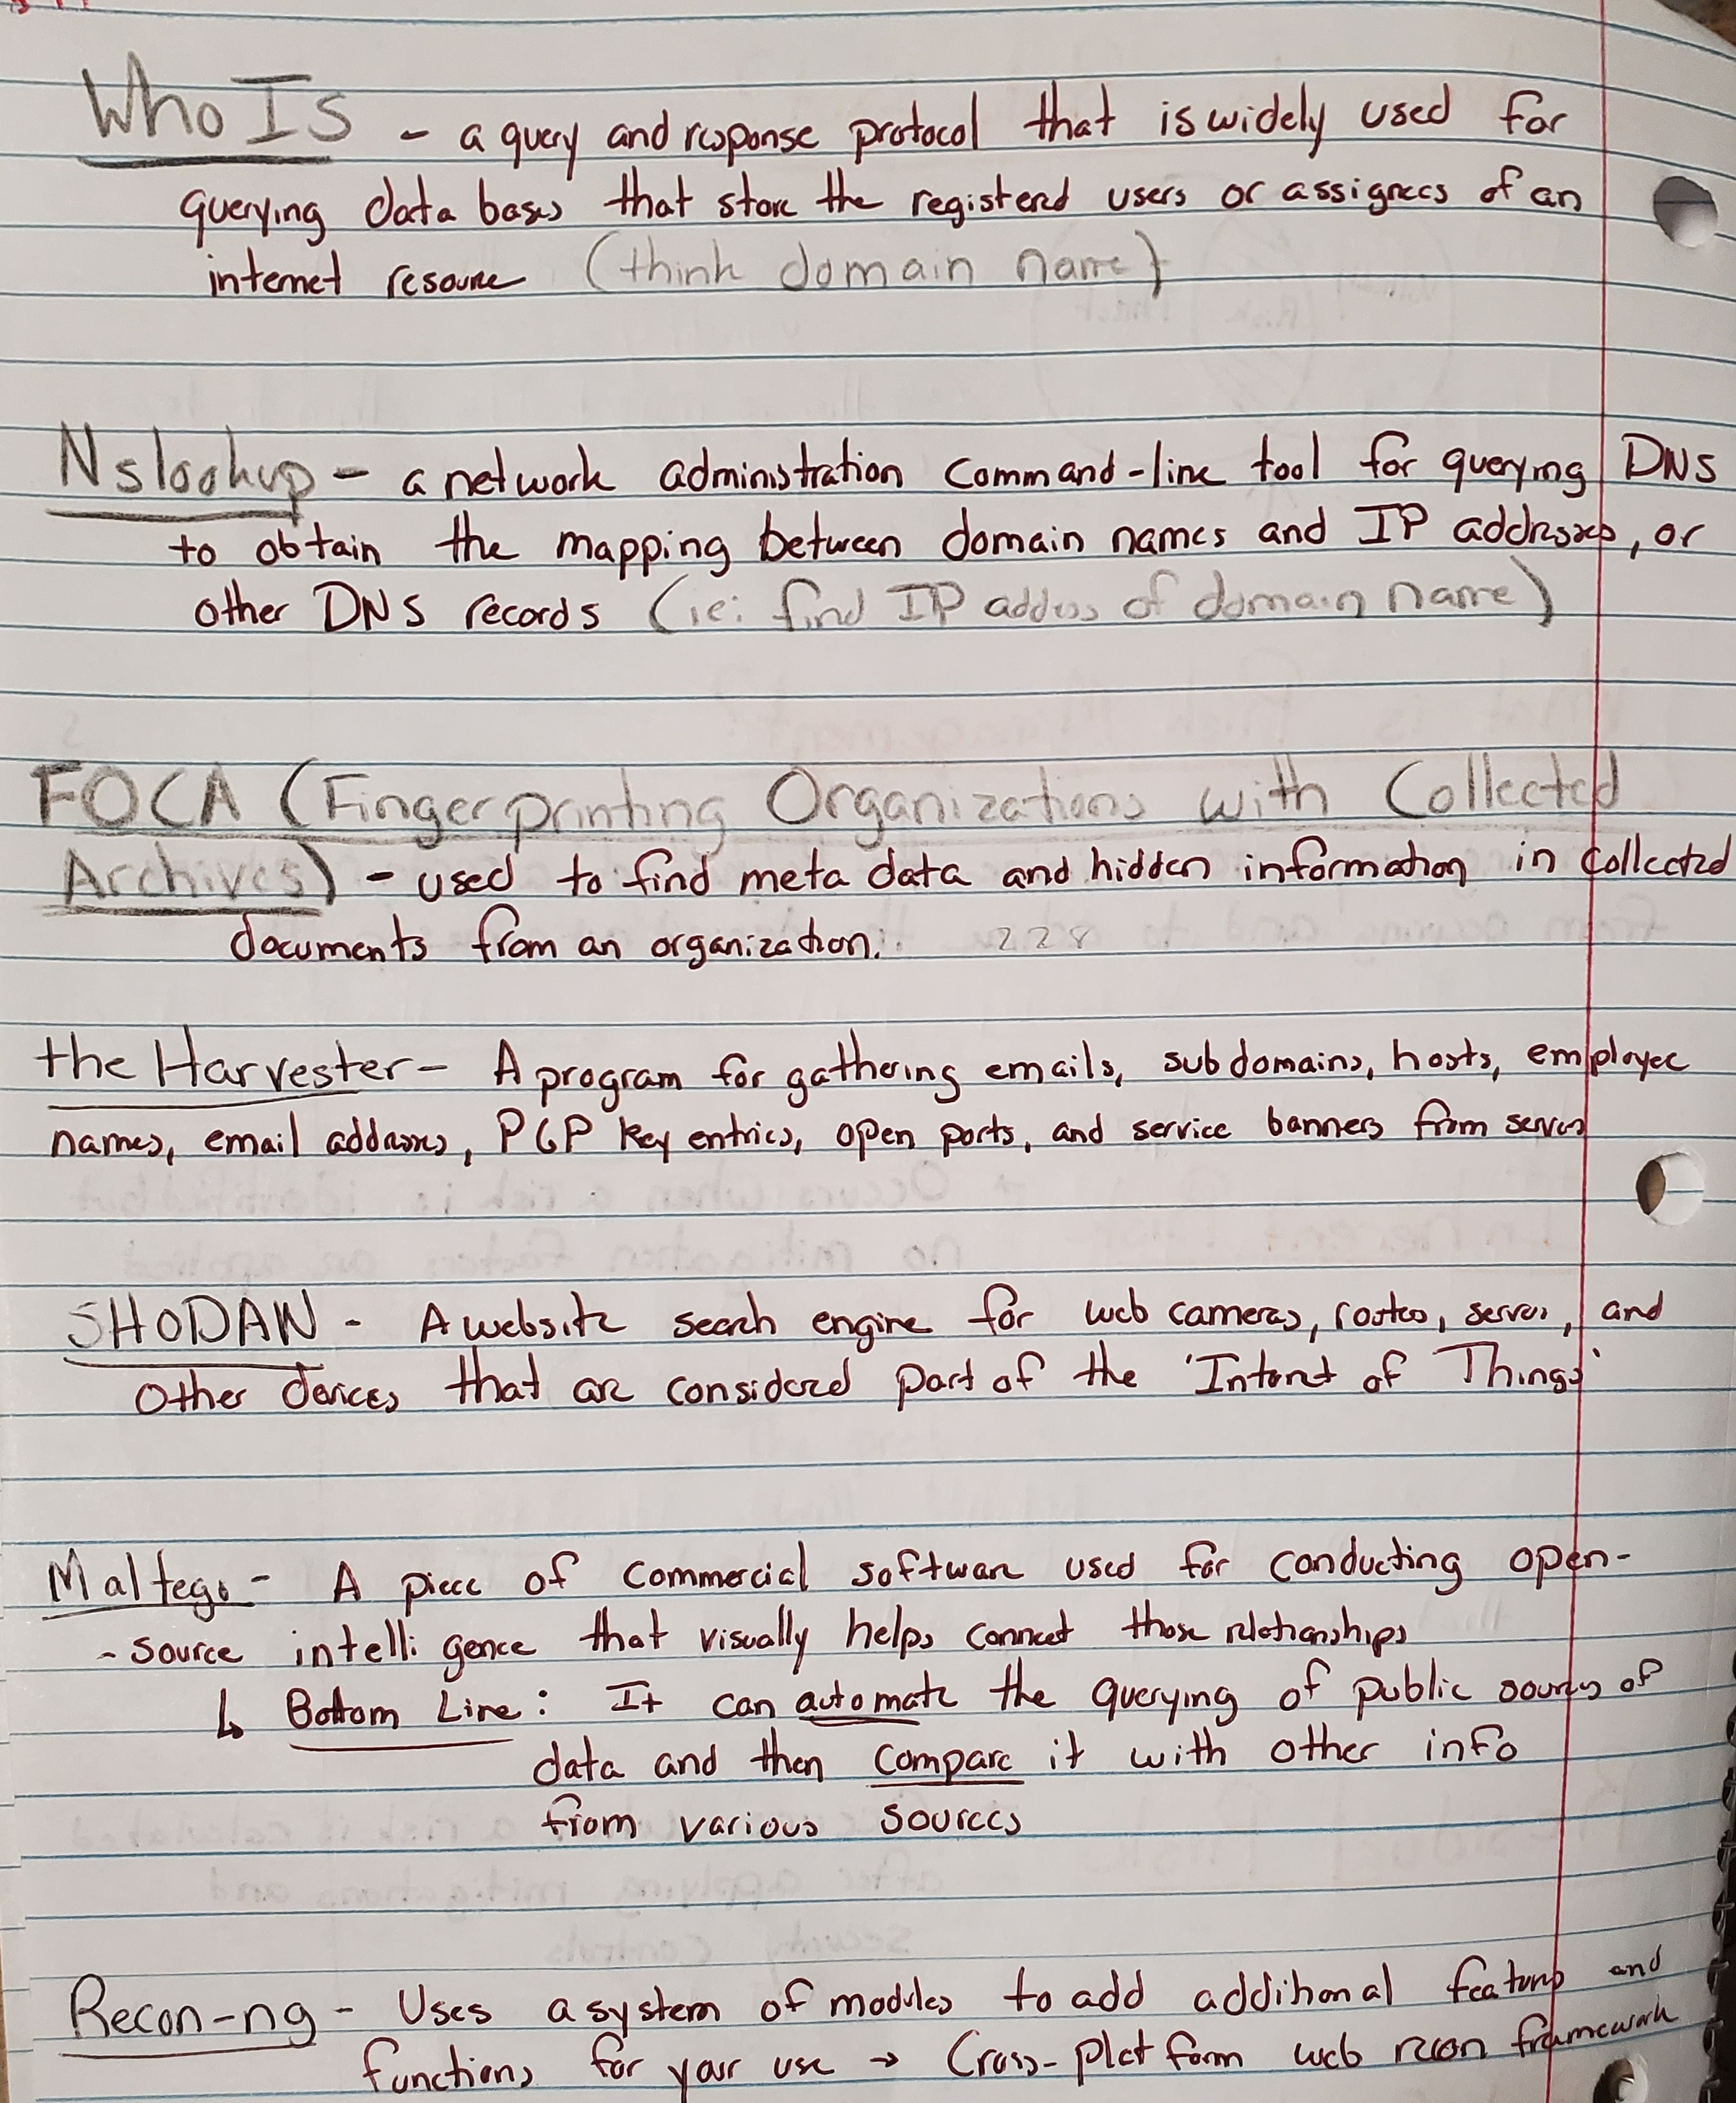 Who Is - a query and response protocol that is widely used for
querying data bases that store the registered users or assignees of an
internet resource (think domain name)
Nslookup - a network administration command-line tool for querying DNS
to obtain the mapping between domain names and IP addresses, or
other DNS records (ie: find IP address of domain name)
FOCA (Fingerprinting Organizations with Collected
Archives) - used to find meta data and hidden information in collected
documents from an organization. 228
the Harvester - A program for gathering emails, subdomains, hosts, employee
names, email addresses, PGP key entries, open ports, and service banners from servers
SHODAN - A website search engine for web cameras, routers, servers, and
other devices that are considered part of the 'Internet of Things'
Maltego - A piece of commercial software used for conducting open-
- source intelligence that visually helps connect those relationships
↳ Bottom Line: It can automate the querying of public sources of
data and then compare it with other info
from various sources
Recon-ng - Uses a system of modules to add additional features and
functions for your use → Cross-platform web recon framework